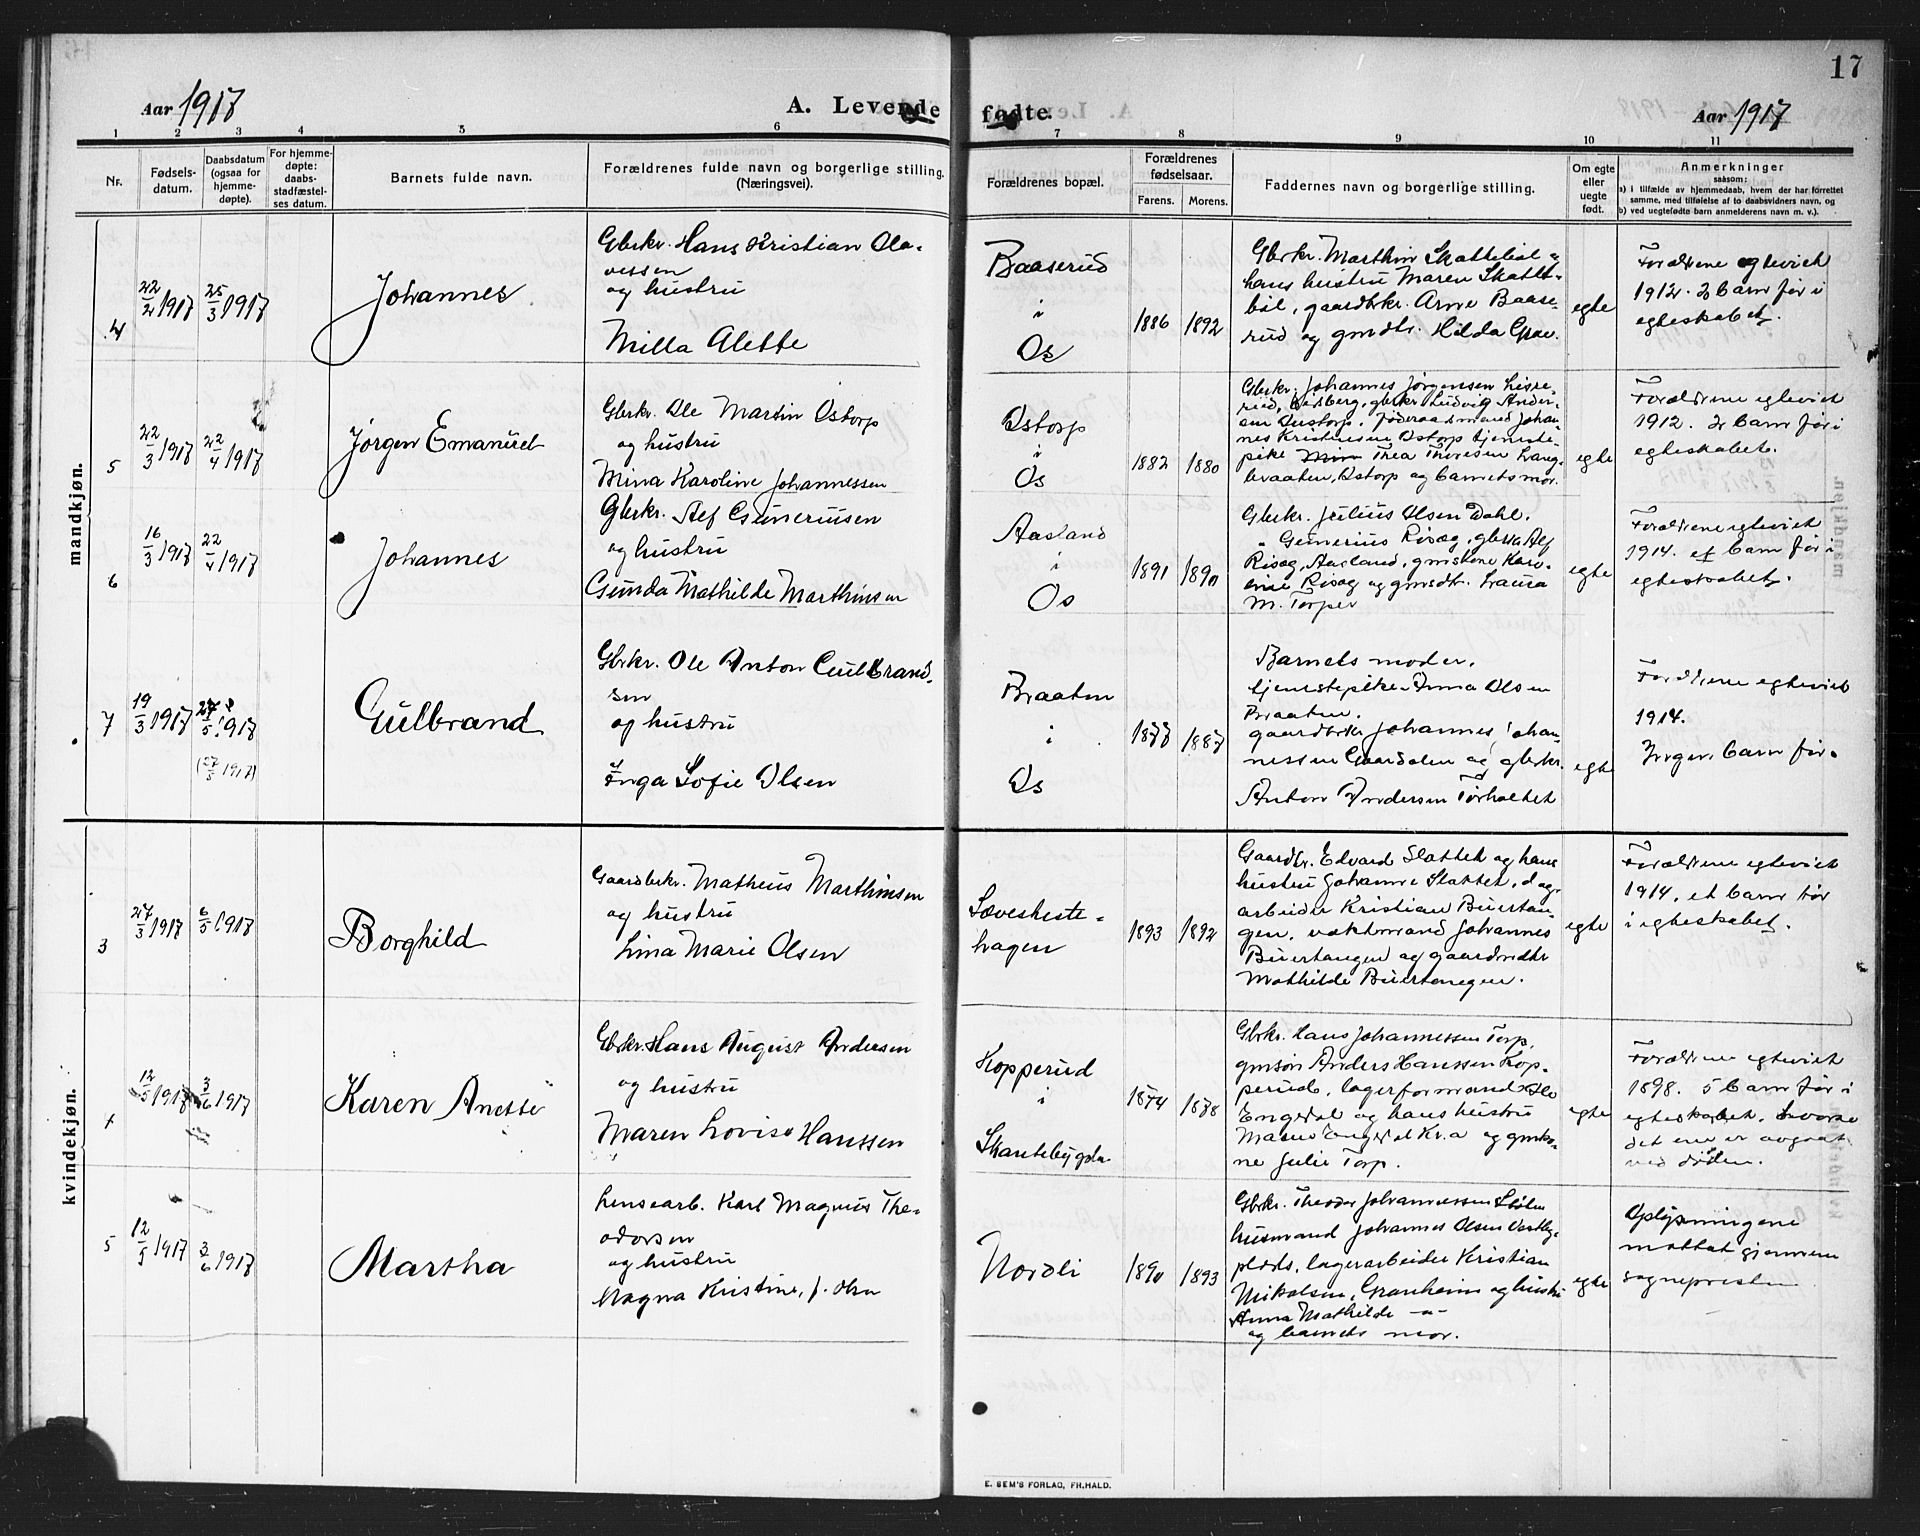 17
Aar 1917
A. Levende
fødte.
Aar 1917
1 2 3 4 5 6 7 8 9 10 11
Nr.
Fødsels-
datum.
Daabsdatum
(ogsaa for
hjemme-
døpte).
For hjemme-
døpte:
daabs-
stadfæstel-
ses datum.
Barnets fulde navn.
Forældrenes fulde navn og borgerlige stilling
(Næringsvei).
Forældrenes bopæl.
Forældrenes
fødselsaar.
Farens. Morens.
Faddernes navn og borgerlige stilling.
Om egte
eller
uegte
født.
Anmerkninger
saasom:
a) i tilfælde av hjemmedaab, hvem der har forrettet
samme, med tilføielse af to daabsvidners navn, og
b) ved uegtefødte barn anmelderens navn m. v.).
mandkjøn.
4
22/2 1917
25/3 1917
Johannes
Gbrkr. Hans Kristian Ola-
vessen
og hustru
Milla Alette
Baaserud
i
Os
1886 1892
Gbrkr. Marthin Skattebøl og
hans hustru Maren Skatte-
bøl, gaardbrkr. Arne Baase-
rud og gmdtr. Hilda
egte
Forældrene egteviet
1912. 2 barn før i
egteskabet.
5
22/3 1917
22/4 1917
Jørgen Emanuel
Gbrkr. Ole Martin Ostorp
og hustru
Mina Karoline Johannessen
Ostorp
i
Os
1882 1880
Gbrkr. Johannes Jørgensen
gbrkr Ludvig Ander-
sen Ostorp, føderaadsmand Johan-
nes Kristiansen Ostorp tjeneste-
pike Thea Thoresen Lang-
braaten, Ostorp og barnets mor.
egte
Forældrene egteviet
1912. 2 barn før i
egteskabet.
6
16/3 1917
22/4 1917
Johannes
Gbrkr. Alf Guneriusen
og hustru
Gunda Mathilde Marthinsen
Aasland
i
Os
1891 1890
Gbrkr. Julius Olsen Dahl,
" Gunerius Risæg, gbrkr Alf
Risøg, Aasland, gmskone Karo-
line Risøg og gmdtr. Laura
M. Torper
egte
Forældrene egteviet
1914. et barn før i
egteskabet.
7
19/3 1917
27/5 1917
(27/5 1917)
Gulbrand
Gbrkr. Ole Anton Gulbrand-
sen
og hustru
Inga Sofie Olsen
Braaten
i
Os
1877 1887
Barnets moder,
tjenestepike Anna Olsen
Braaten,
gaardbrkr Johannes Johan-
nessen Gaardalen og gbrkr.
Anton Andersen Tørholtet
egte
Forældrene egteviet
1914.
Ingen barn før.
kvindekjøn.
3
27/3 1917
6/5 1917
Borghild
Gaardbrkr. Matheus Marthinsen
og hustru
Lina Marie Olsen
Løvesheste-
hagen
1893 1892
Gaardbr. Edvard Slattet og hans
hustru Johanne Slattet, dag-
arbeider Kristian Buertan-
gen, vaktmand Johannes
Buertangen og gaardmdtr
Mathilde Buertangen.
egte
Forældrene egteviet
1914. et barn før
i egteskabet.
4
12/5 1917
3/6 1917
Karen Anette
Gbrkr. Hans August Andersen
og hustru
Maren Lovise Hanssen
Kopperud
i
Skantebygda
1874 1878
Gbrkr. Hans Johannessen Torp,
gmsøn Anders Hanssen Kop-
perud, lagerformand Ole
Engedal og hans hustru
Engedal Kr.a og gmko-
ne Julie Torp.
egte
Forældrene egteviet
1898. 5 barn før i
egteskabet, hvorav
det ene er avgaat
ved døden.
5
12/5 1917
3/6 1917
Martha
Lensearb. Karl Magnus The-
odorsen
og hustru
Magna Kristine, f. Olsen
Nordli
1890 1893
Gbrkr. Theodor Johannessen Stølen
husmand Johannes Olsen Vestby-
plads, lagerarbeider Kristian
Mikalsen, Granheim og hustru
Anna Mathilde —"—
og barnets mor.
egte
Oplysningene
mottat gjennem
sognepresten
E. SEM'S FORLAG, FR.HALD.